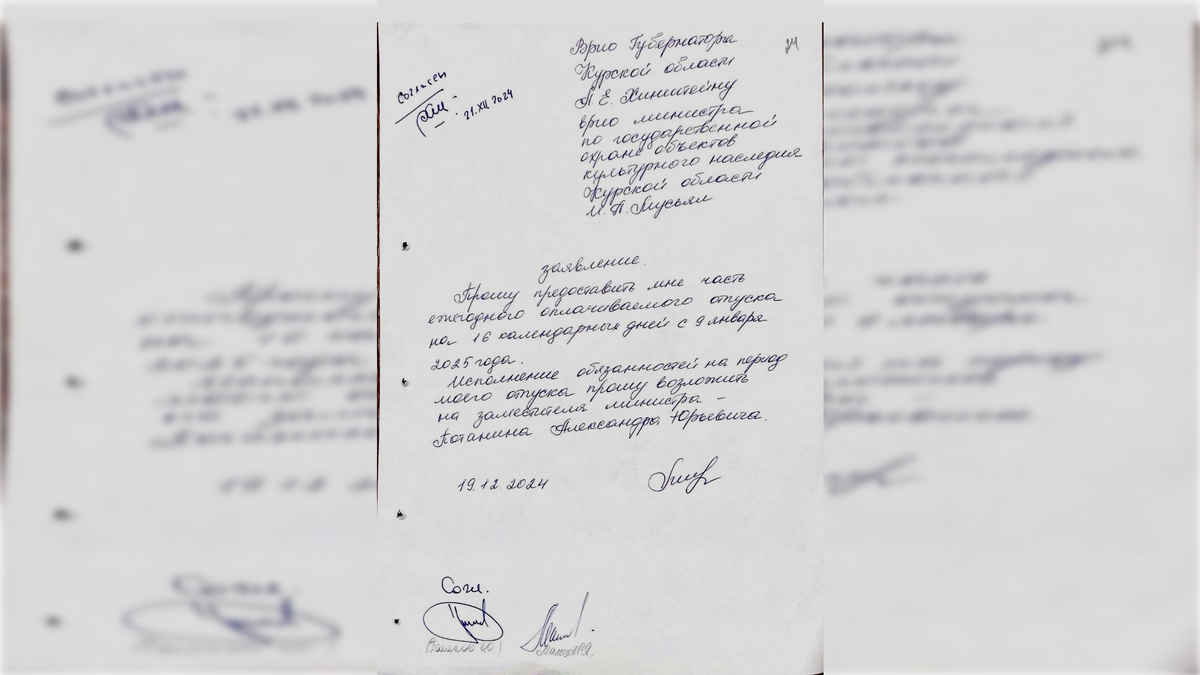 Врио Губернатора
Курской области
А.Е. Хинштейну
врио министра
по государственной
охране объектов
культурного наследия
Курской области
И.П. Мусьял
согласен
21.XII.2024
заявление.
Прошу предоставить мне часть
ежегодного оплачиваемого отпуска
на 16 календарных дней с 9 января
2025 года.
Исполнение обязанностей на период
моего отпуска прошу возложить
на заместителя министра –
Потанина Александра Юрьевича.
19.12.2024
Согл.